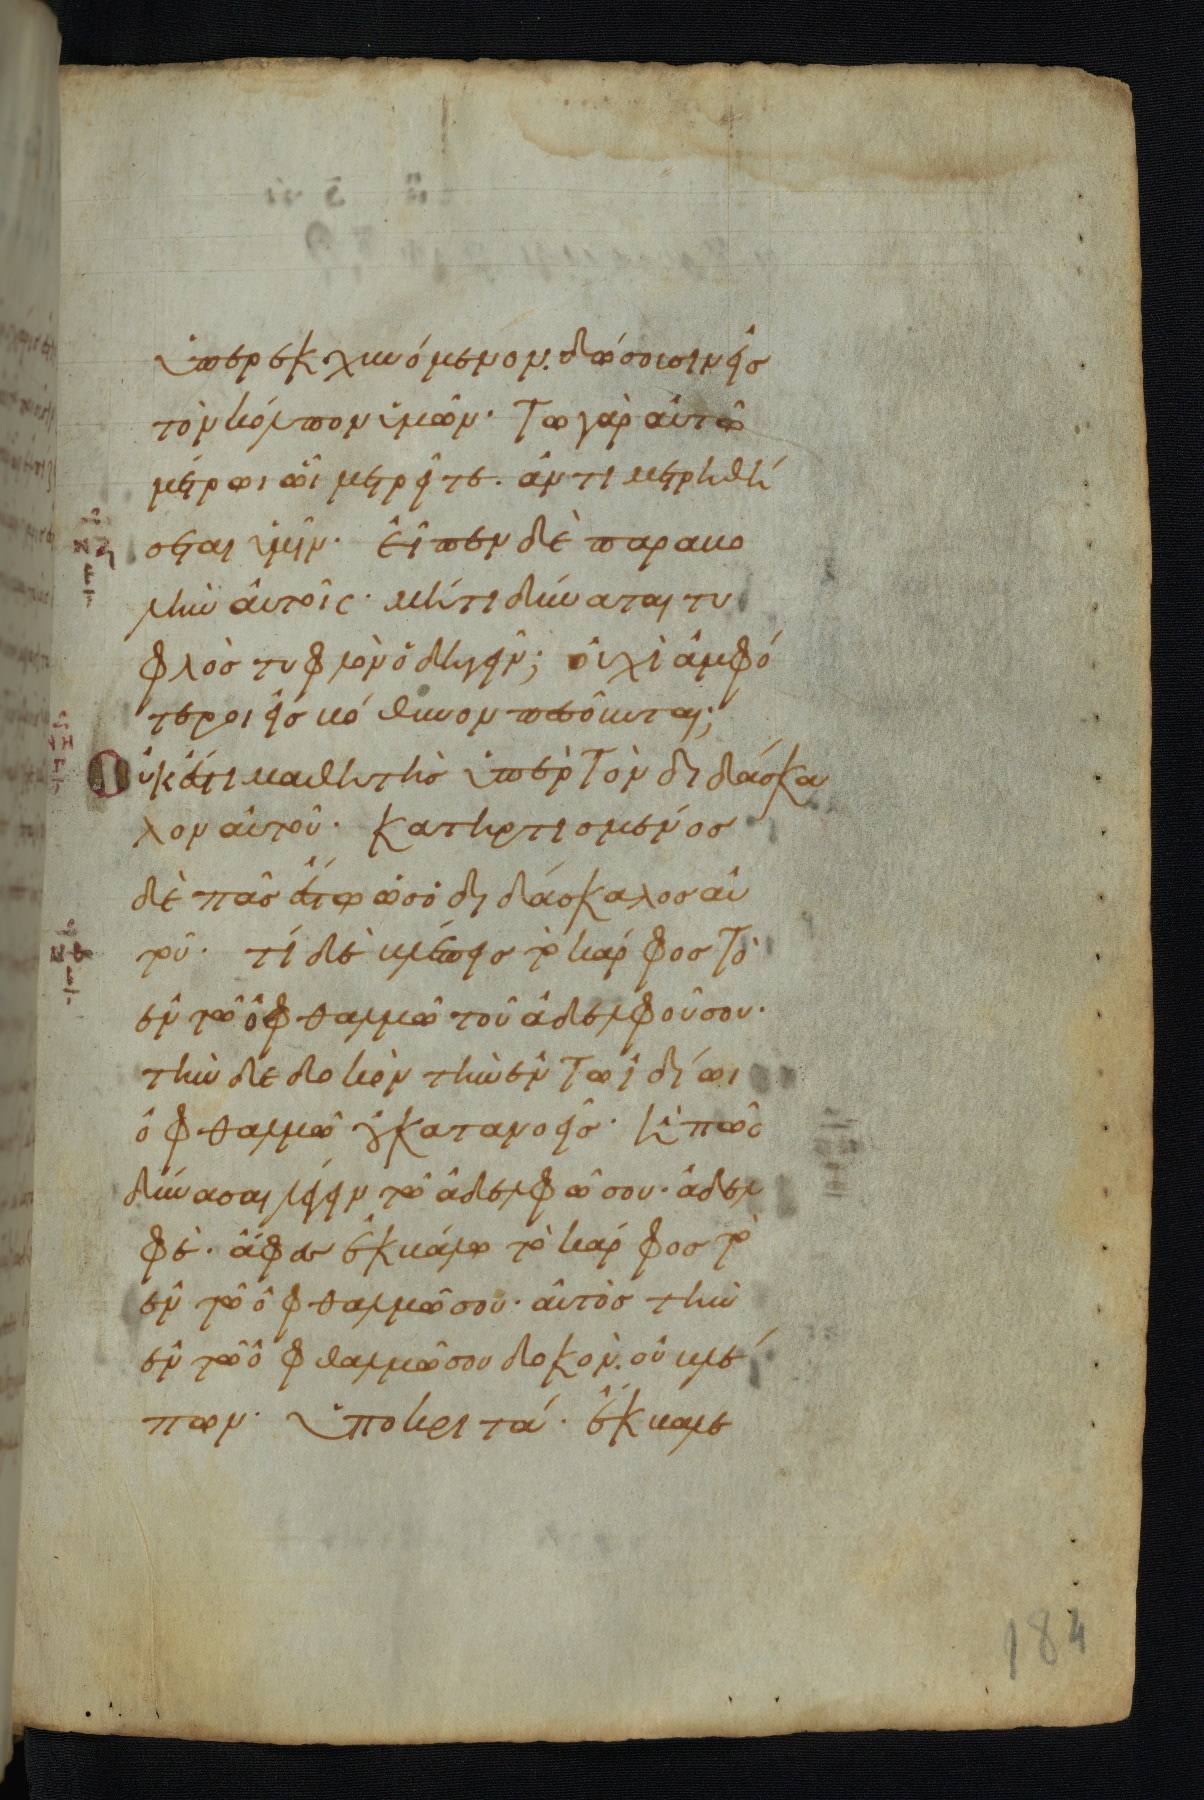 ὑπερεκχυνόμενον. δώσουσιν εἰς
τὸν κόλπον ὑμῶν· τῶ γὰρ αὐτῶ
μέτρωι ὧι μετρεῖτε. ἀντιμετρηθή
σεται ὑμῖν· εἶπεν δὲ παραβο
λὴν αὐτοῖς· μήτι δύναται τυ
φλὸσ τυφλὸν ὁδηγεῖν; οὐχὶ ἀμφό
τεροι εἰσ βόθυνον πεσοῦνται;
Οὐκ ἔστι μαθητὴσ ὑπὲρ τὸν διδάσκα
λον αὐτοῦ· κατηρτισμένοσ
δὲ πᾶσ ἔσται ὡσ ὁ διδάσκαλοσ αὐ
τοῦ· τί δὲ βλέπεισ τὸ κάρφοσ τὸ
ἐν τῶ ὀφθαλμῶ τοῦ ἀδελφοῦ σου·
τὴν δὲ δοκὸν τὴν ἐν τῶ ἰδίωι
ὀφθαλμῶ οὐ κατανοεῖσ· ἢ πῶσ
δύνασαι λέγειν τῶ ἀδελφῶ σου· ἀδελ
φέ· ἄφεσ ἐκβάλω τὸ κάρφοσ τὸ
ἐν τῶ ὀφθαλμῶ σου· αὐτὸσ τὴν
ἐν τῶ ὀφθαλμῶ σου δοκὸν. οὐ βλέ
πων· ὑποκριτά· ἔκβαλε
184